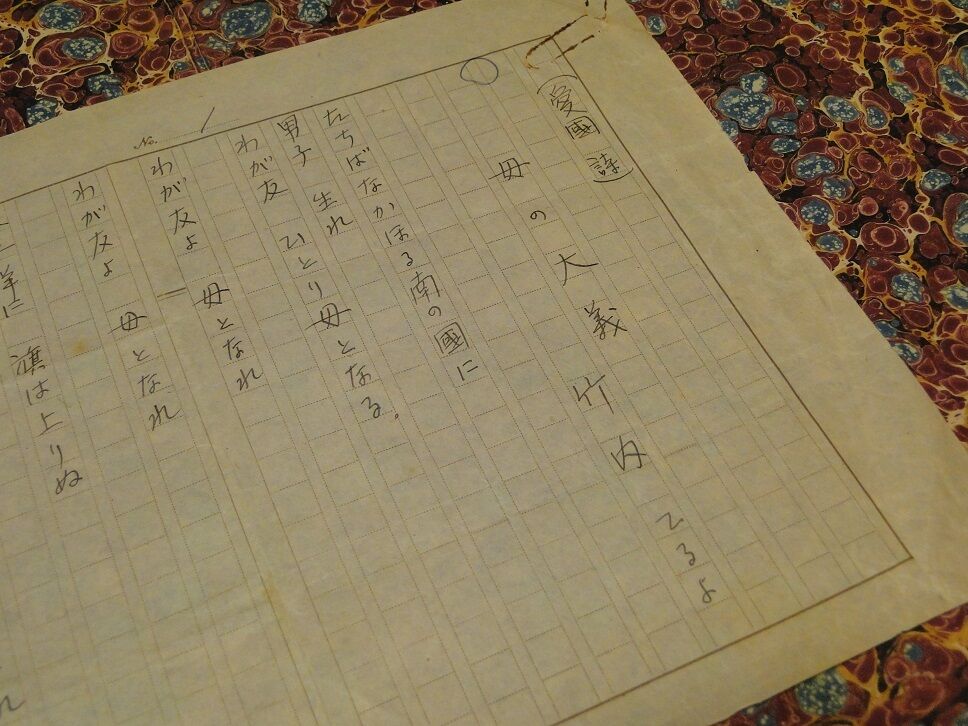 (愛國詩)
母の大義 竹内てるよ
たちばなかほる南の國に
男子 生れ
わが友 ひとり母となる。
わが友よ 母となれ
わが友よ 母となれ
に 旗は上りぬ
れ
No. 1